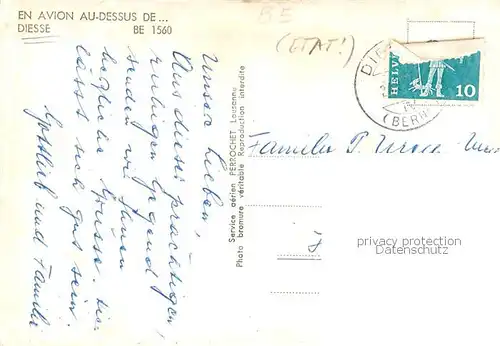 EN AVION AU-DESSUS DE...
DIESSE BE 1560
BE
(ETAT!)
HELV
10
(BERN
Unsere Lieben,
Aus dieser prächtigen,
ruhigen Gegend
senden wir Ihnen
herzliche Grüsse. Hier
lässt sich gut sein.
Gottlieb und Familie
Service aérien PERROCHET Lausanne
Photo bromure véritable Reproduction interdite
Familie P.
privacy protection
Datenschutz